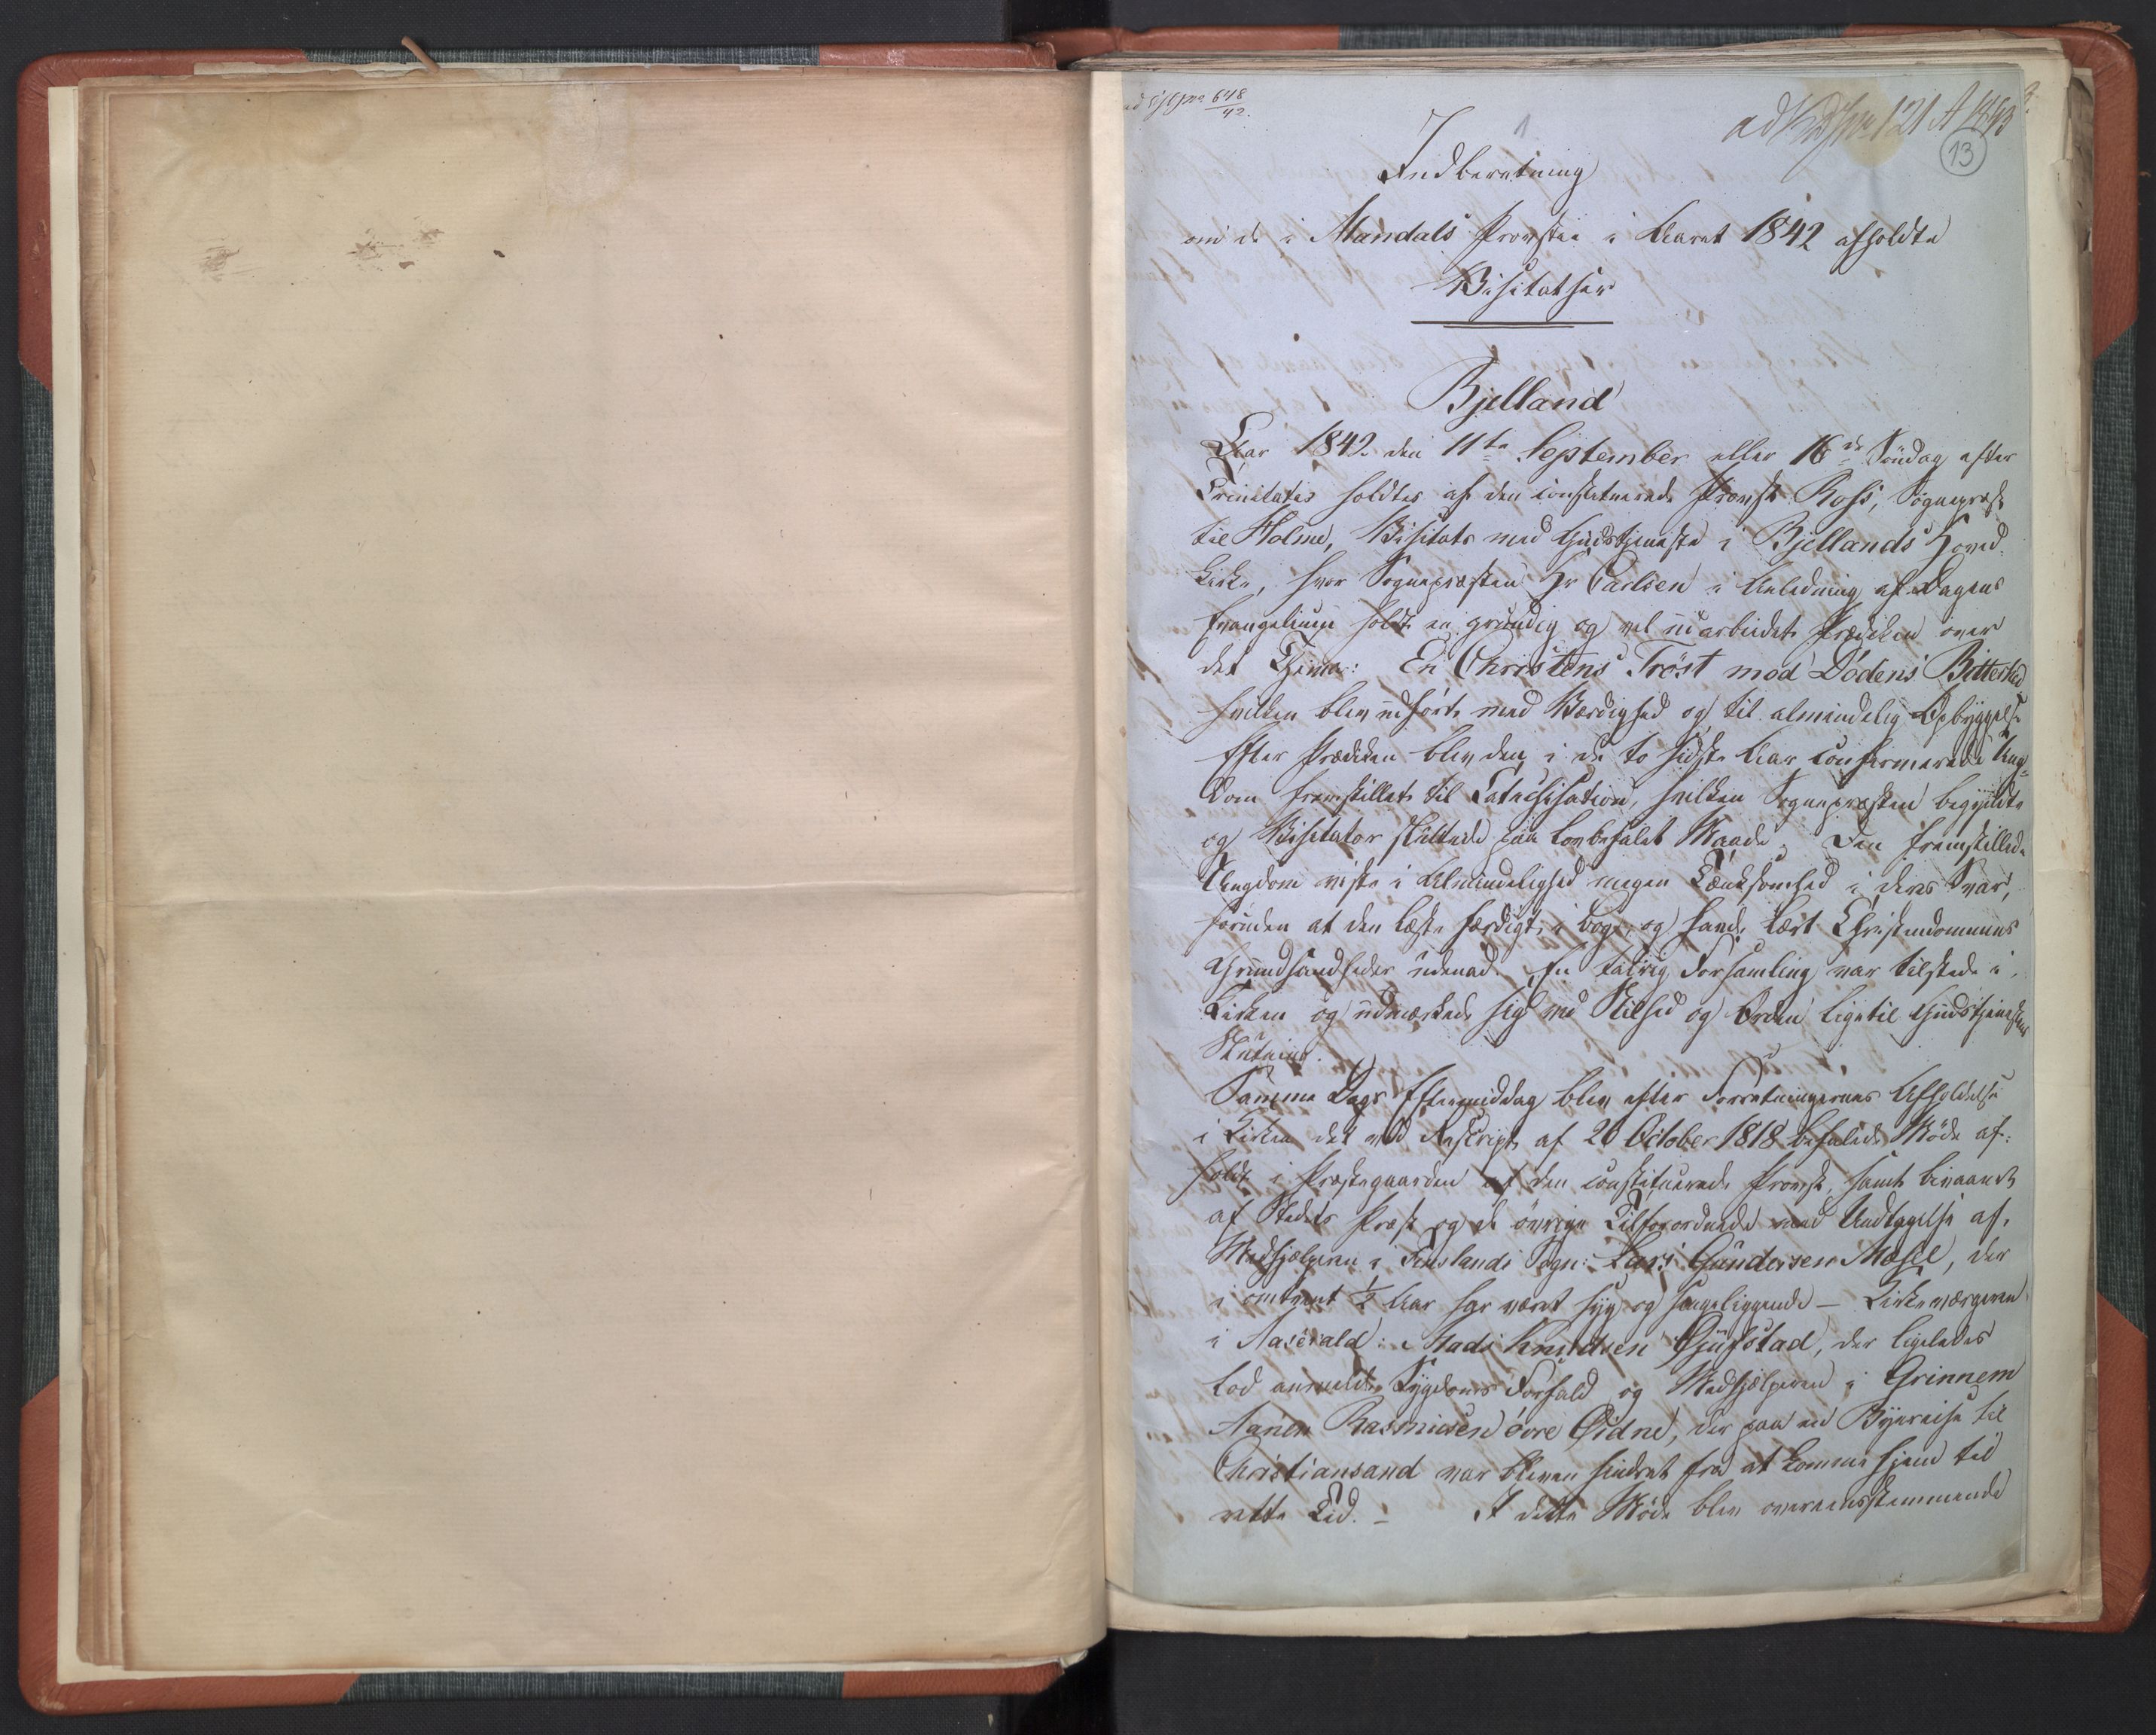 648
42.
1
13
Indberetning
om de i Mandals Provstie i Aaret 1842 afholdte
Visitatser
Bjelland
Aar 1842 den 11te September eller 16de Søndag efter
Trinitatis holdtes af den constituerede Provst Ross, Sognepræst
til Holme, Visitats med Gudstjeneste i Bjellands Hoved-
kirke, hvor Sognepræsten Hr Carlsen i Anledning af Dagens
Evangelium holdt en grundig og vel udarbeidet Prædiken over
det Thema: En Christens Trøst mod Dødens Bitterhed
hvilken blev udført med Værdighed og til almindelig Opbyggelse
Efter Prædiken blev den i de to sidste Aar confirmerede Ung-
dom fremstillet til Catechisation, hvilken Sognepræsten begyndte
og Visitator sluttede paa lovbefalet Maade. Den fremstillede
Ungdom viste i Almindelighed megen Tænksomhed i deres Svar,
foruden at den læste færdigt i Bog, og havde lært Christendommens
Grundsandheder udenad. En talrig Forsamling var tilstede i
Kirken og udmærkede sig ved Stilhed og Orden ligetil Gudstjenestens
Slutning.
Samme Dags Eftermiddag blev efter Forretningernes Afholdelse
i Kirken det ved Rescript af 20 October 1818 befalede Møde af-
holdt i Præstegaarden af den constituerede Provst, samt bivaanet
af Stedets Præst og de øvrige Tilforordnede med Undtagelse af
Medhjælperen i Finslands Sogn: Lars Gundersen Møsel, der
i omtrent 1/2 Aar har været syg og sengeliggende — Kirkeværgeren
i Aaserald: Mads Knudsen Øjufstad, der ligeledes
lod anmelde Sygdoms Forfald og Medhjælperen i Grinnem
Aanen Rasmusen øvre Øidne, der paa en Byereise til
Christiansand var bleven hindret fra at komme hjem til
rette Tid. — I dette Møde blev overeensstemmende